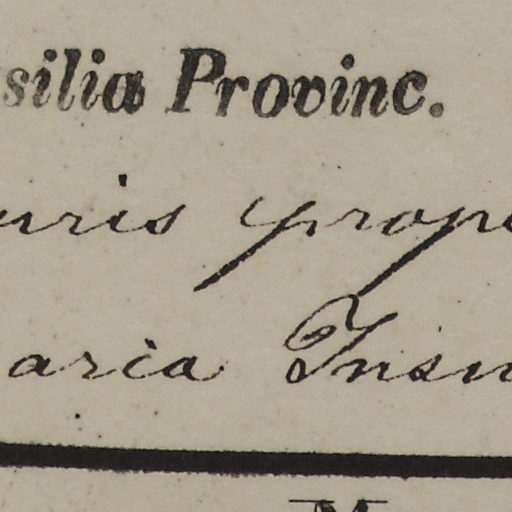 silia Provinc.
uris prope
aria Insu